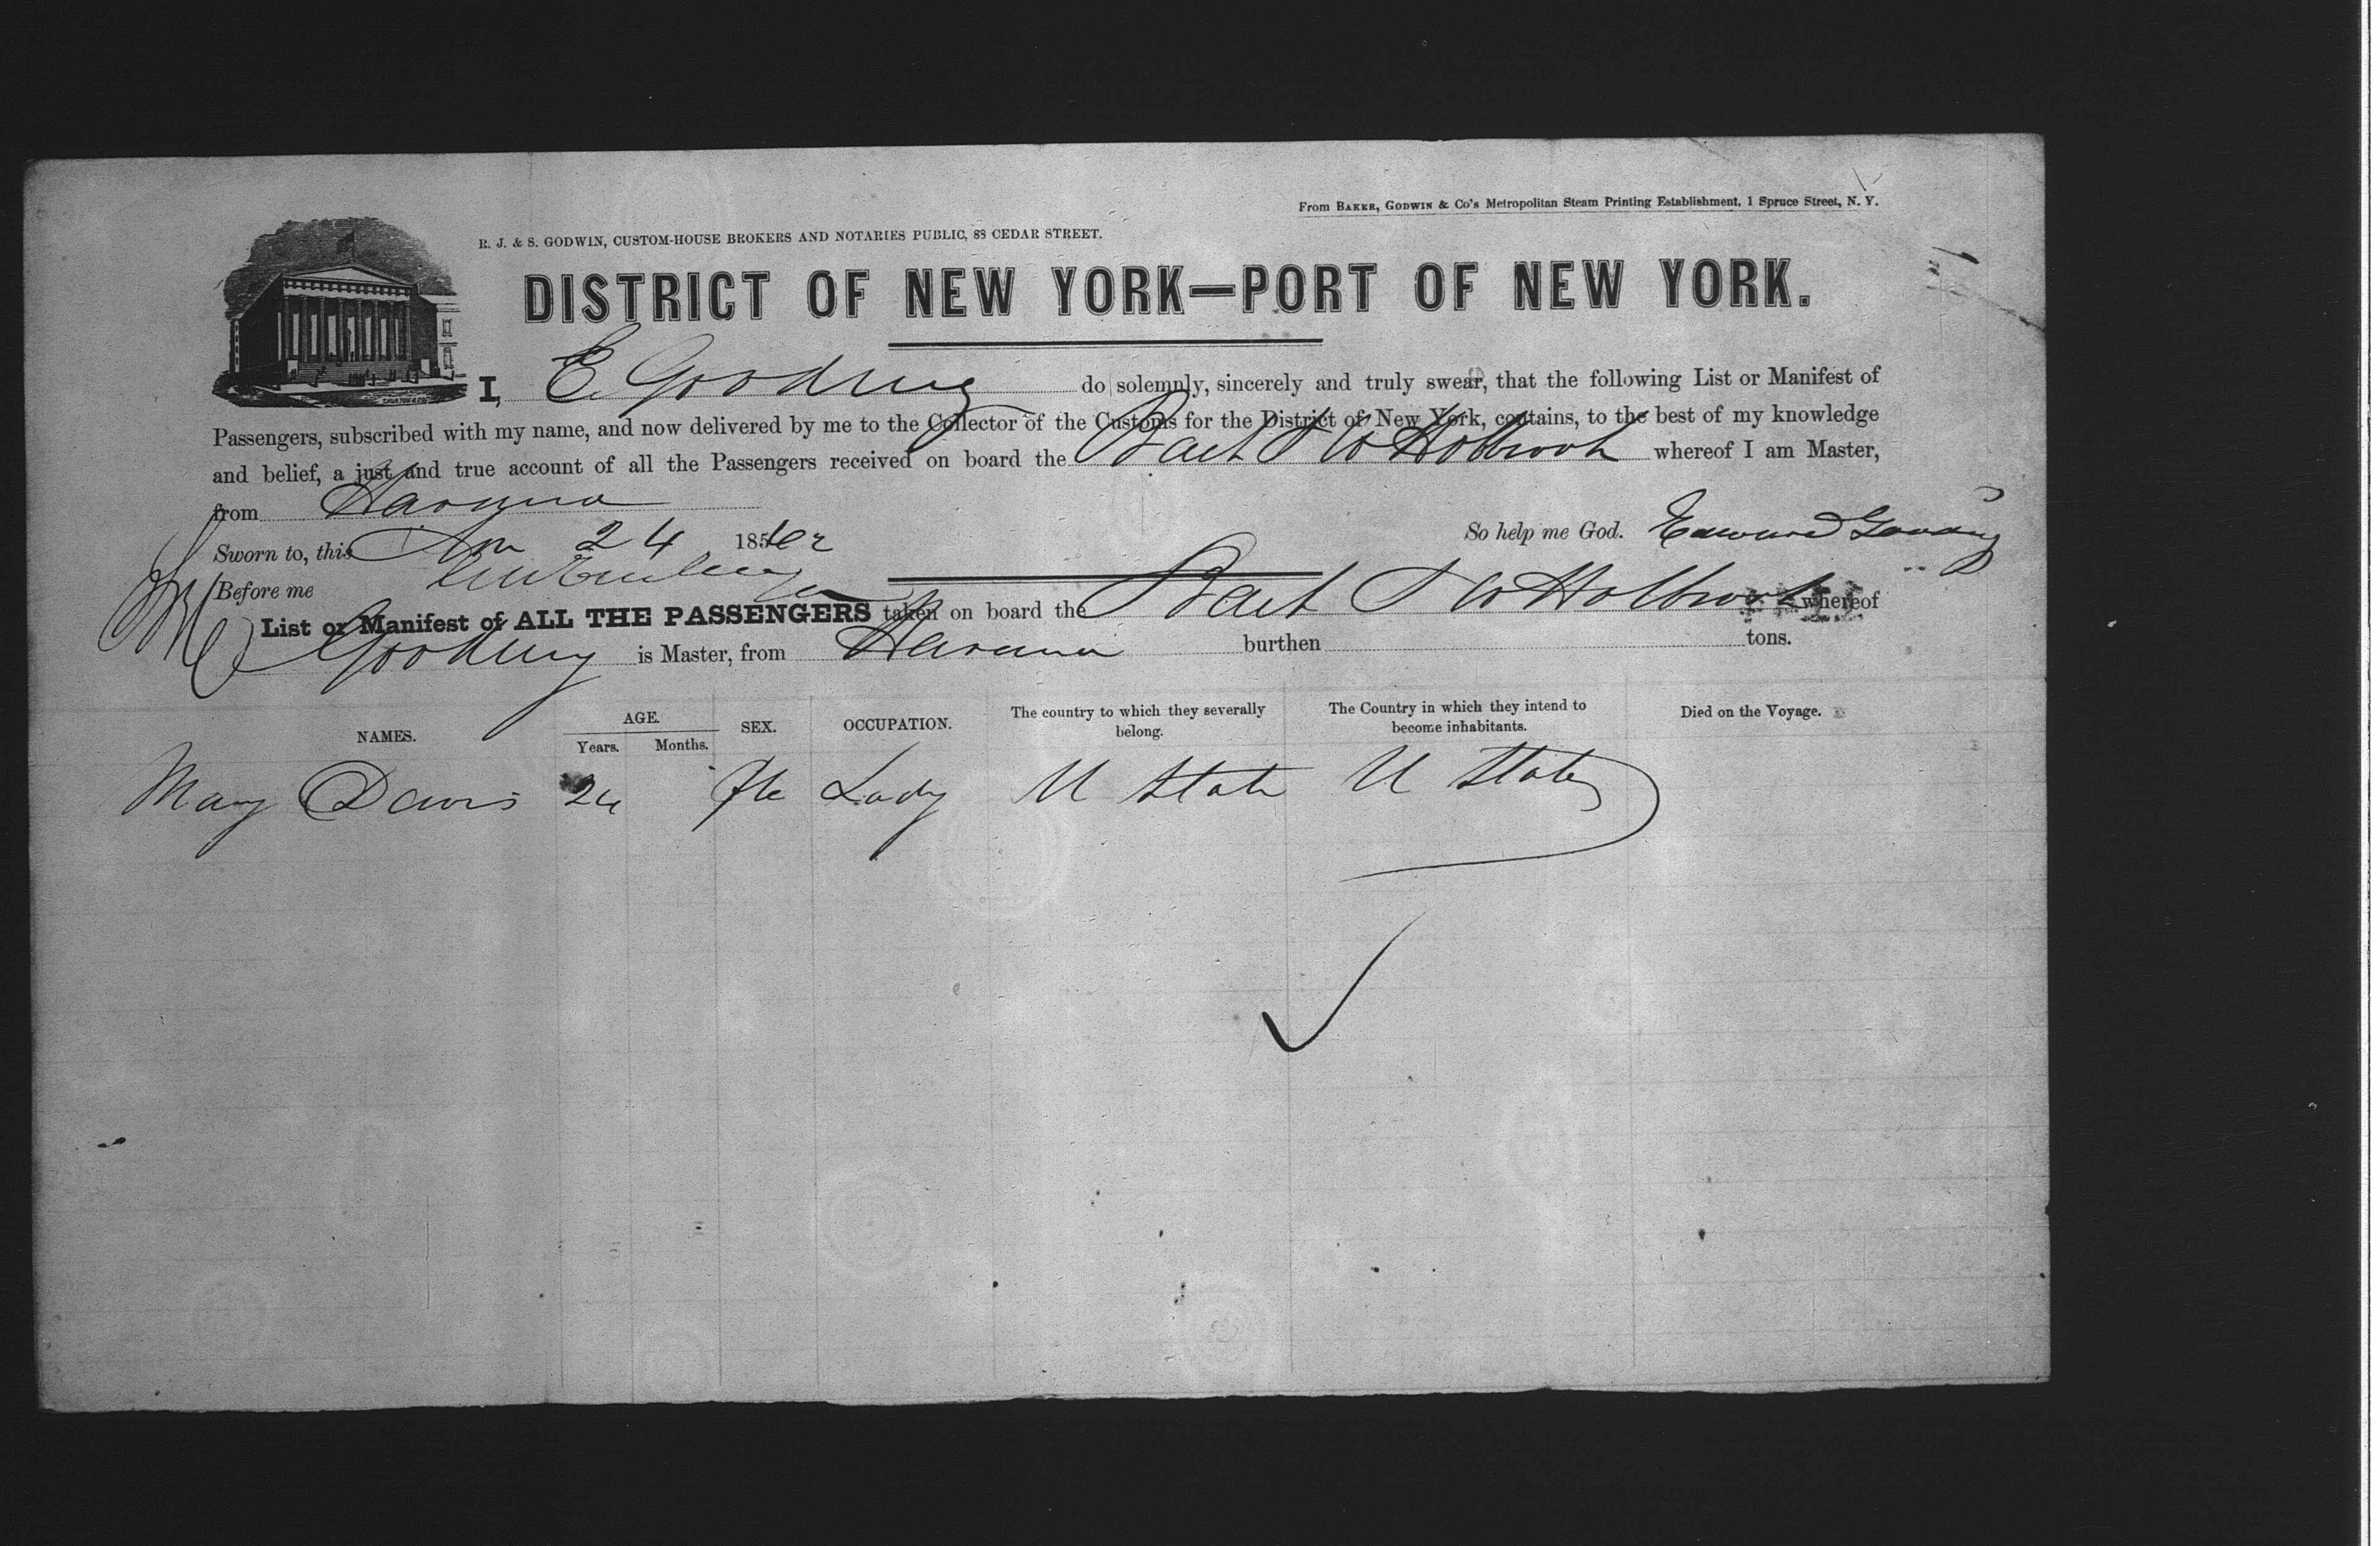 From BAKER, GODWIN & Co's Metropolitan Steam Printing Establishment, 1 Spruce Street, N. Y.
R. J. & S. GODWIN, CUSTOM-HOUSE BROKERS AND NOTARIES PUBLIC, 88 CEDAR STREET.
DISTRICT OF NEW YORK—PORT OF NEW YORK.
I, E. Gooding do solemnly, sincerely and truly swear, that the following List or Manifest of
Passengers, subscribed with my name, and now delivered by me to the Collector of the Customs for the District of New York, contains, to the best of my knowledge
and belief, a just and true account of all the Passengers received on board the Bark J W Holbrook whereof I am Master,
from Havana
So help me God. Edward Gooding
Sworn to, this 24 185
Before me
List or Manifest of ALL THE PASSENGERS taken on board the Bark J W Holbrook whereof
Gooding is Master, from Havana burthen tons.
NAMES. AGE. Years. Months. SEX. OCCUPATION. The country to which they severally belong. The Country in which they intend to become inhabitants. Died on the Voyage.
Mary Davis 24 Fe Lady U State U States